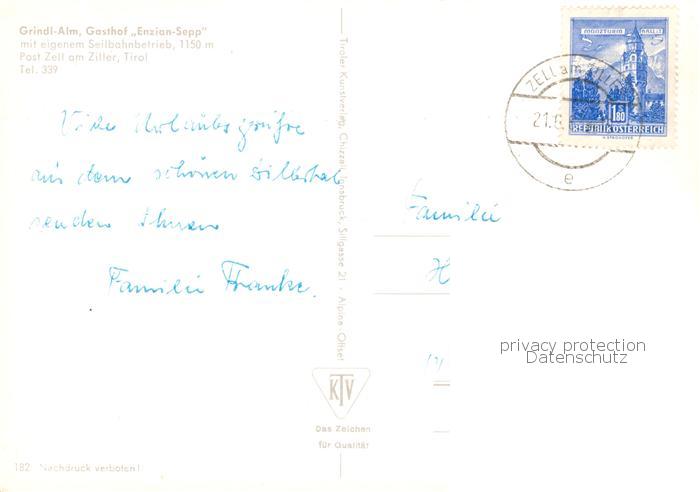 Grindl-Alm, Gasthof „Enzian-Sepp"
mit eigenem Seilbahnbetrieb, 1150 m
Post Zell am Ziller, Tirol
Tel. 339
Viele Urlaubsgrüße
aus dem schönen Zillertal
senden Ihnen
Familie Franke.
Tiroler Kunstverlag Chizzali, Innsbruck, Sillgasse 21 · Alpina-Offset
KTV
Das Zeichen
für Qualität
182 Nachdruck verboten!
MÜNZTURM HALL i. T.
1.80
REPUBLIK ÖSTERREICH
ZELL am ZILLER
21.6.
e
Familie
H
privacy protection
Datenschutz